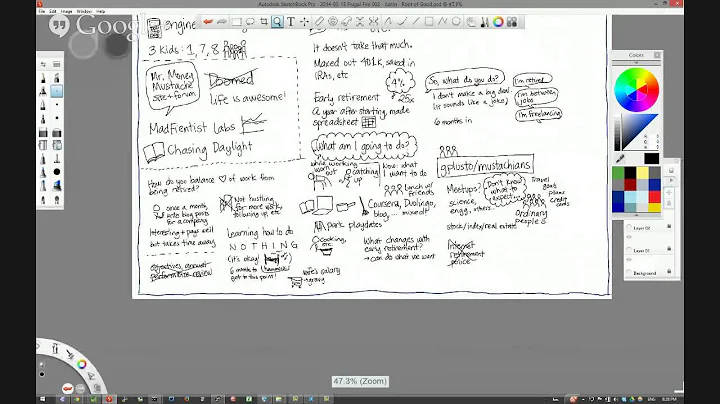 Autodesk SketchBook Pro - 2014-03-13 Frugal Fire 002 - Justin - Root of Good.png @ 47.3%
File Edit Image Window Help
Google
Engine
3 Kids: 1, 7, 8
Mr. Money
Mustache
site + forum
Doomed
life is awesome!
MadFientist labs
Chasing Daylight
How do you balance
of work from
being retired?
once a month,
write blog posts
for a company
Interesting + pays well
but takes time away
objectives, annual
performance review
Not hustling
for more work,
following up, etc.
Learning how to do
NOTHING
(it's okay!
6 months to
get to this point!
hammock
It doesn't take that much.
Maxed out 401k, saved in
IRAs, etc
4%
25x
Early retirement
A year after starting, made
spreadsheet
What am I going to do?
while working
worn
out
catching
up
Now: what
I want to do
lunch w/
friends
Coursera, Duolingo,
blog,
park playdates
cooking,
etc.
wife's salary
gravy
What changes with
early retirement?
→ can do what we want
So, what do you do?
I don't make a big deal.
(it sounds like a joke)
6 months in
I'm retired
I'm between
jobs
I'm freelancing
gplus.to/mustachians
Meetups?
science,
engg, others
Don't know
what to
expect
Travel
goals
plane
credit
cards
Ordinary
people
stock/index/real estate
Internet
retirement
police
Colors
Layer 02
Layer 01
Background
47.3% (Zoom)
ENG
8:28 PM